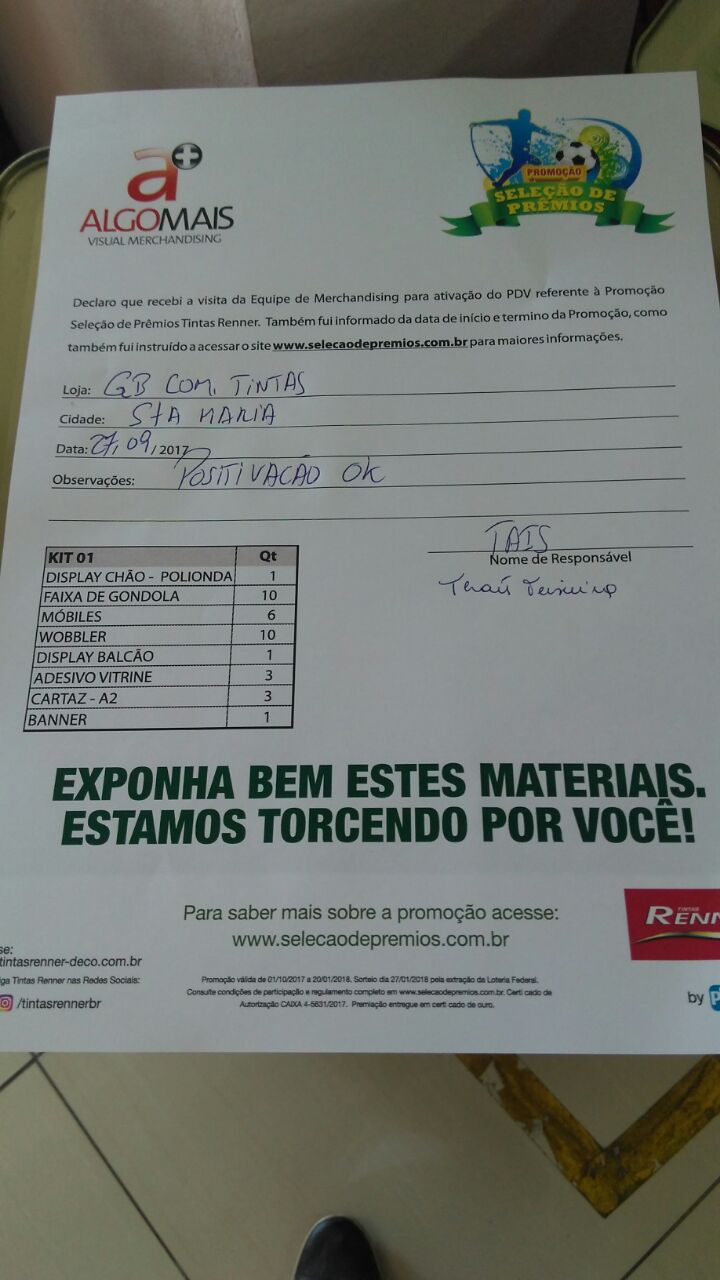 a+
ALGOMAIS
VISUAL MERCHANDISING
PROMOÇÃO
SELEÇÃO DE
PRÊMIOS
Declaro que recebi a visita da Equipe de Merchandising para ativação do PDV referente à Promoção
Seleção de Prêmios Tintas Renner. Também fui informado da data de início e termino da Promoção, como
também fui instruído a acessar o site www.selecaodepremios.com.br para maiores informações.
Loja: GB COM. TINTAS
Cidade: STA MARIA
Data: 27/09/2017
Observações: POSITIVAÇÃO OK
TAIS
Nome de Responsável
Teixeira
KIT 01 Qt
DISPLAY CHÃO - POLIONDA 1
FAIXA DE GONDOLA 10
MÓBILES 6
WOBBLER 10
DISPLAY BALCÃO 1
ADESIVO VITRINE 3
CARTAZ - A2 3
BANNER 1
EXPONHA BEM ESTES MATERIAIS.
ESTAMOS TORCENDO POR VOCÊ!
Para saber mais sobre a promoção acesse:
www.selecaodepremios.com.br
TINTAS
RENN
se:
tintasrenner-deco.com.br
iga Tintas Renner nas Redes Sociais:
/tintasrennerbr
Promoção válida de 01/10/2017 a 20/01/2018. Sorteio dia 27/01/2018 pela extração da Loteria Federal.
Consulte condições de participação e regulamento completo em www.selecaodepremios.com.br. Certi cado de
Autorização CAIXA 4-5631/2017. Premiação entregue em certi cado de ouro.
by p